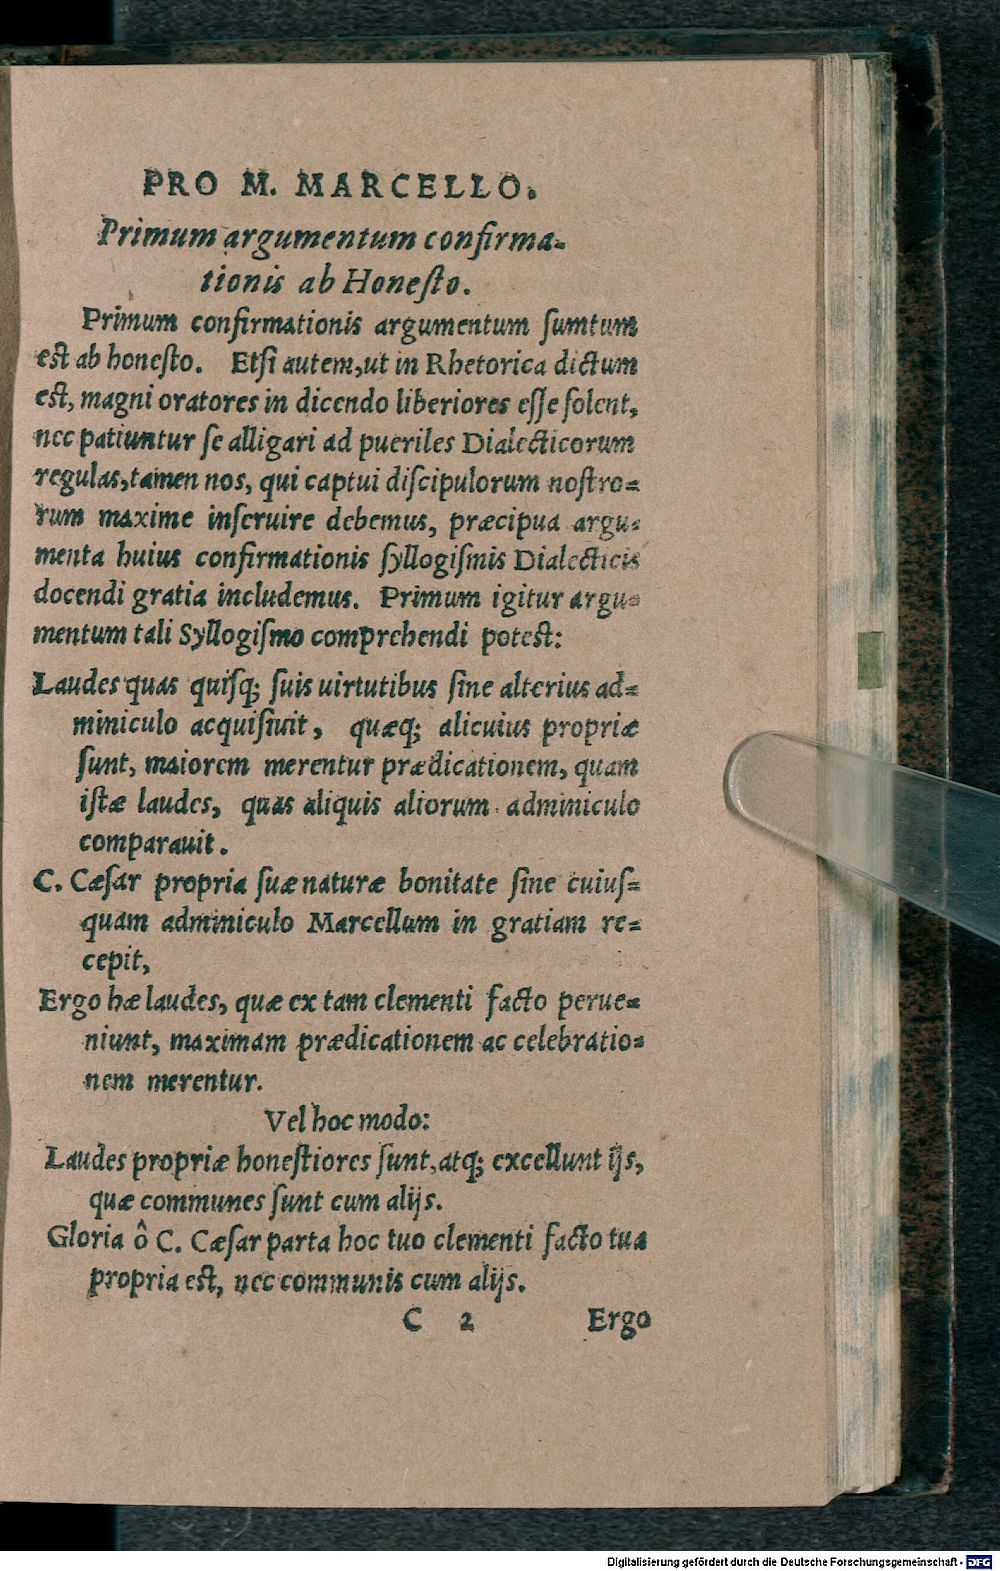 PRO M. MARCELLO.
Primum argumentum confirma-
tionis ab Honeſto.
Primum confirmationis argumentum ſumtum
est ab honeſto. Etſi autem, ut in Rhetorica dictum
est, magni oratores in dicendo liberiores eſſe ſolent,
nec patiuntur ſe alligari ad pueriles Dialecticorum
regulas, tamen nos, qui captui diſcipulorum noſtro-
rum maxime inſeruire debemus, præcipua argu-
menta huius confirmationis ſyllogiſmis Dialecticis
docendi gratia includemus. Primum igitur argu-
mentum tali Syllogiſmo comprehendi potest:
Laudes quas quiſq; ſuis uirtutibus ſine alterius ad-
miniculo acquiſiuit, quæq; alicuius propriæ
ſunt, maiorem merentur prædicationem, quam
iſtæ laudes, quas aliquis aliorum adminiculo
comparauit.
C. Cæſar propria ſuæ naturæ bonitate ſine cuiuſ-
quam adminiculo Marcellum in gratiam re-
cepit,
Ergo hæ laudes, quæ ex tam clementi facto perue-
niunt, maximam prædicationem ac celebratio-
nem merentur.
Vel hoc modo:
Laudes propriæ honeſtiores ſunt, atq; excellunt ijs,
quæ communes ſunt cum alijs.
Gloria ô C. Cæſar parta hoc tuo clementi facto tua
propria est, nec communis cum alijs.
C 2 Ergo
Digitalisierung gefördert durch die Deutsche Forschungsgemeinschaft - DFG